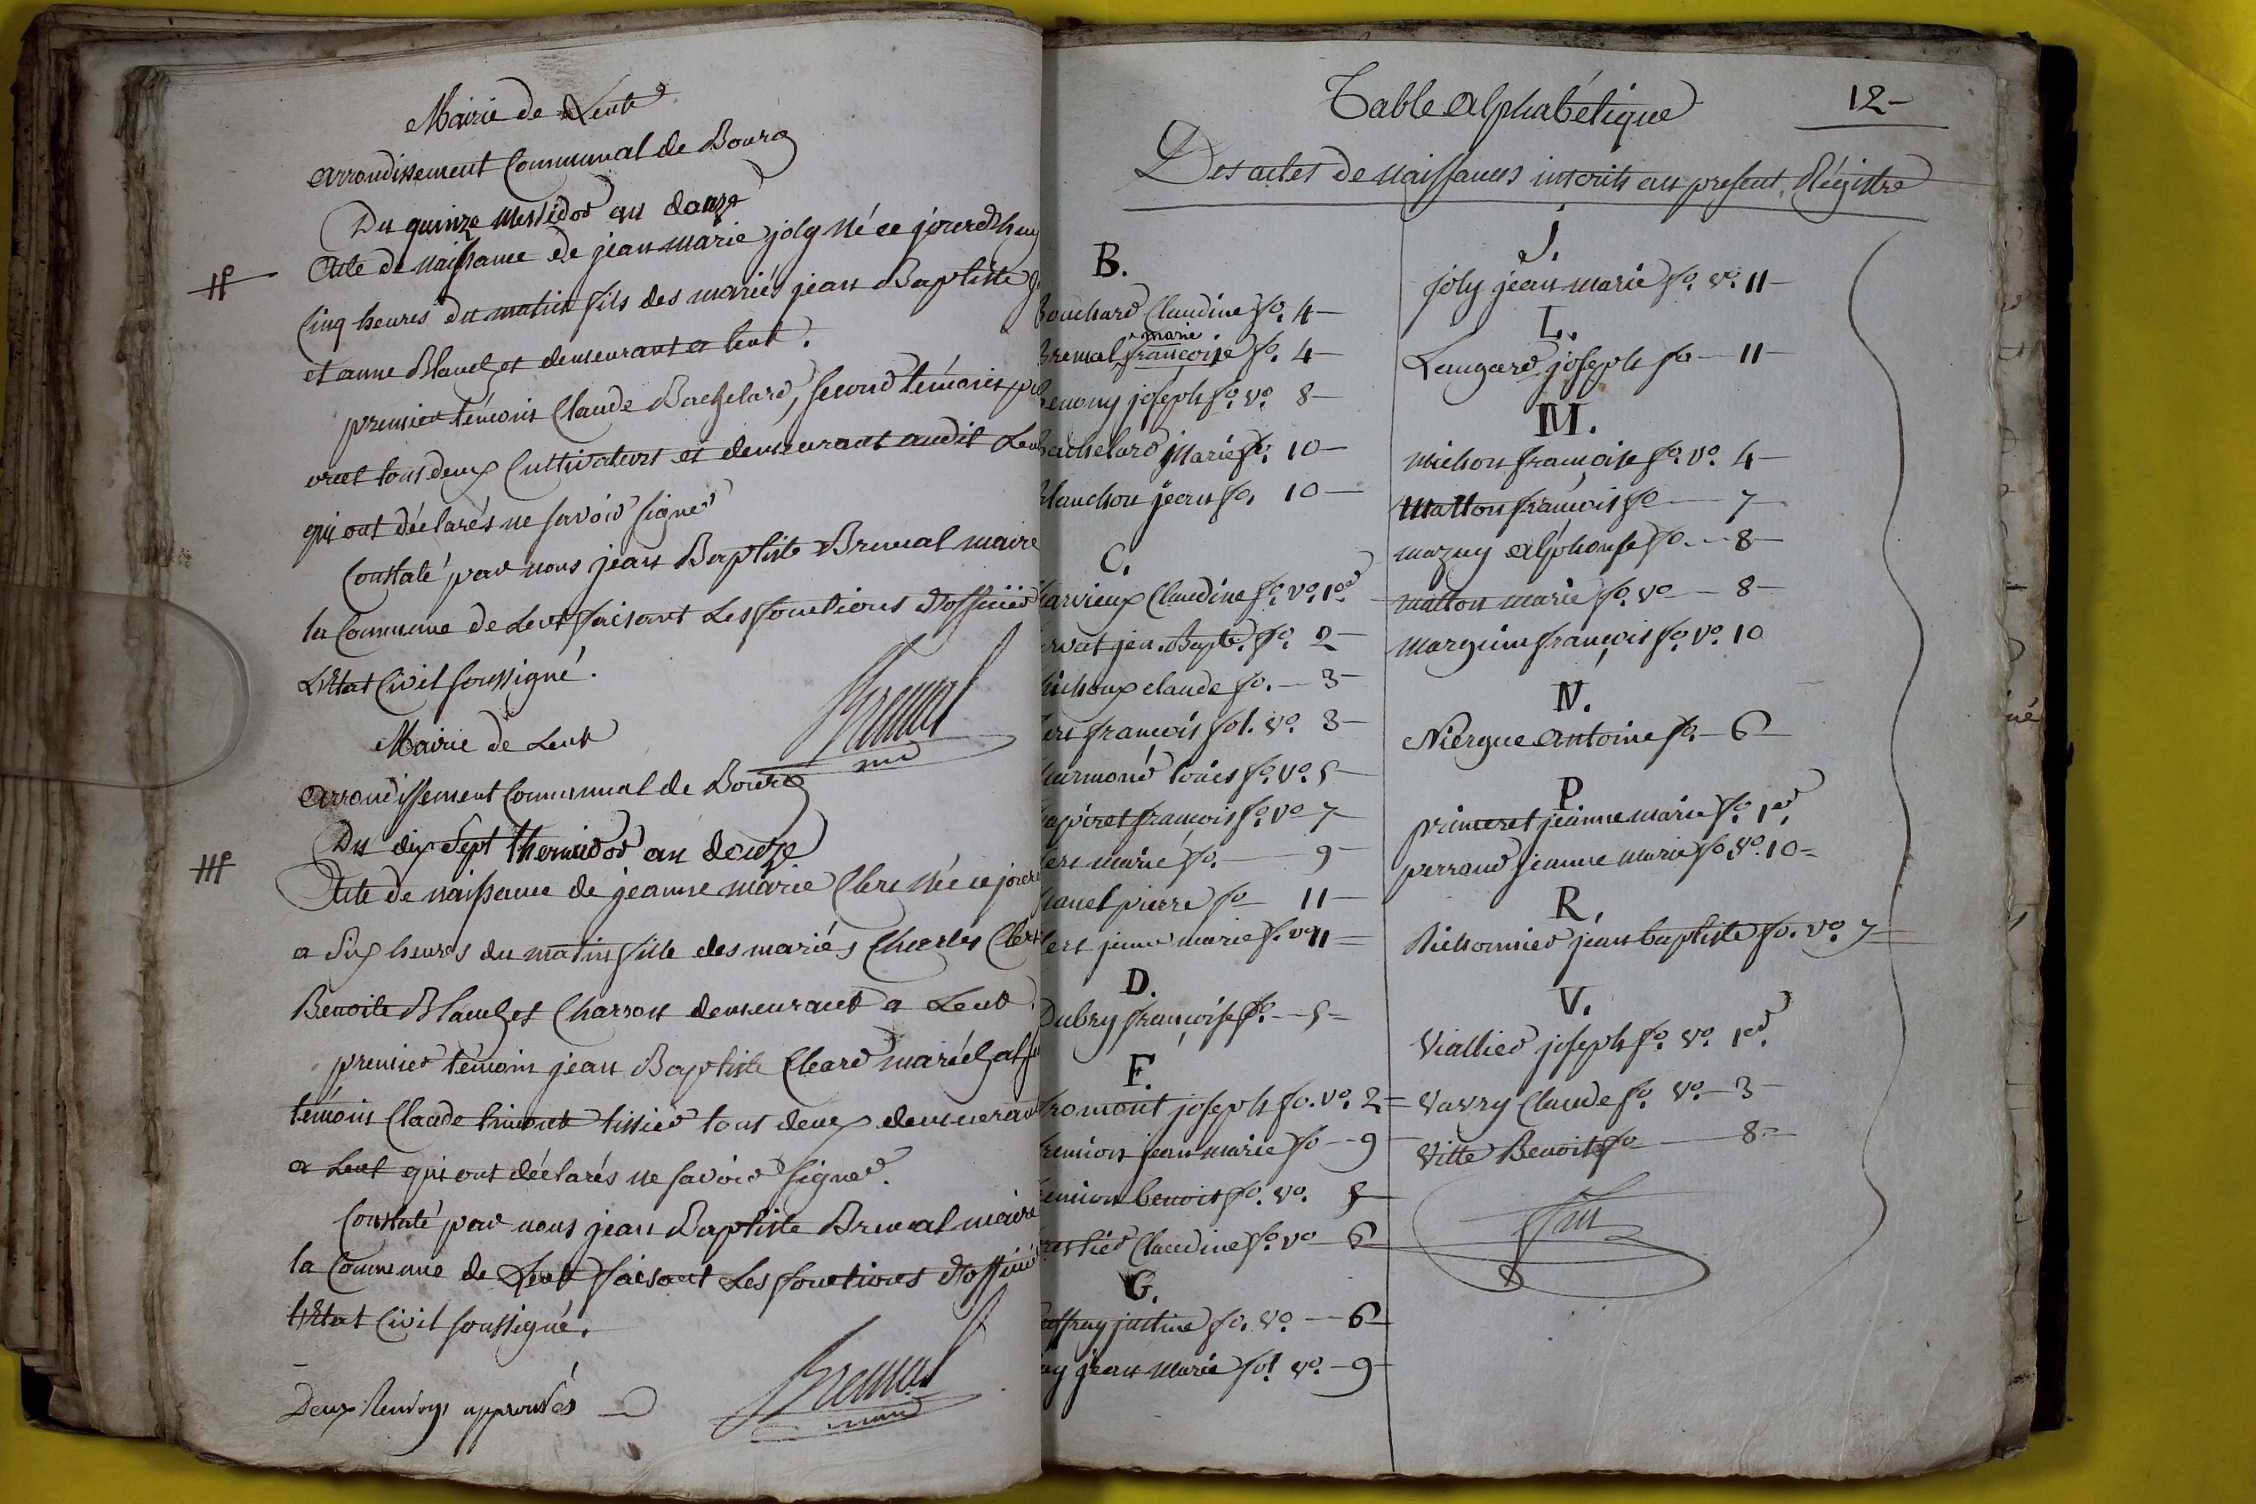 Mairie de Lent
arrondissement Communal de Bourg
Du quinze Messidor an douze
Acte de naissance de jean marie joly Né ce jourdhuy
Cinq heures du matin fils des mariés jean Baptiste
et anne Blanchet demeurant a lent.
premier témoin Claude Bachelard, second témoin
tous deux Cultivateurs et demeurant audit Lent
qui ont déclarés ne savoir signer
Constaté par nous jean Baptiste Breval maire
la Commune de Lent faisant Les fonctions d'officier
L'Etat Civil soussigné.
Mairie de Lent
arrondissement Communal de Bourg
Du dix Sept thermidor an douze
Acte de naissance de jeanne marie Clerc Née ce jour
a Six heures du matin fille des mariés Charles Clerc
Benoite Blanchet Charron demeurant a Lent
premier témoin jean Baptiste Cleard maréchal
témoin Claude tissier tous deux demeurant
a Lent qui ont déclarés ne savoir signer.
Constaté par nous jean Baptiste Breval maire
la Commune de Lent faisant Les fonctions d'officier
L'Etat Civil soussigné.
Deux Renvoys approuvés
Table alphabétique
12
Des actes de naissances inscrits au present Régistre
B.
Bouchard Claudine fo. 4
marie
françoise fo. 4
joseph fo. vo. 8
Bachelard Marie fo. 10
Blanchon jean fo. 10
C.
Claudine fo. vo. 1er
jean. Bapte. fo. 2
claude fo. 3
françois fol. vo. 3
louis fo. vo. 5
françois fo. vo 7
marie fo. 9
pierre fo 11
jeane marie fo. vo 11
D.
Dubry françoise fo. 5
F.
fromont joseph fo. vo. 2
jean marie fo 9
benoit fo. vo. 5
Claudine fo. vo 6
G.
justine fo. vo. 6
jean marie fol. vo. 9
J.
joly jean marie fo. vo. 11
L.
Laugard joseph fo 11
M.
Michon françoise fo. vo. 4
Matton françois fo 7
mazuy alphonse fo. 8
matton marie fo. vo 8
Marguin françois fo. vo. 10
N.
Niergue antoine fo. 6
P.
primeret jeanne marie fo. 1er.
perraud jeanne marie fo. vo. 10
R.
Richonnier jean baptiste fo. vo. 7
V.
Viallier joseph fo. vo. 1er.
Vavry Claude fo. vo. 3
Vitte Benoit fo 8
fin